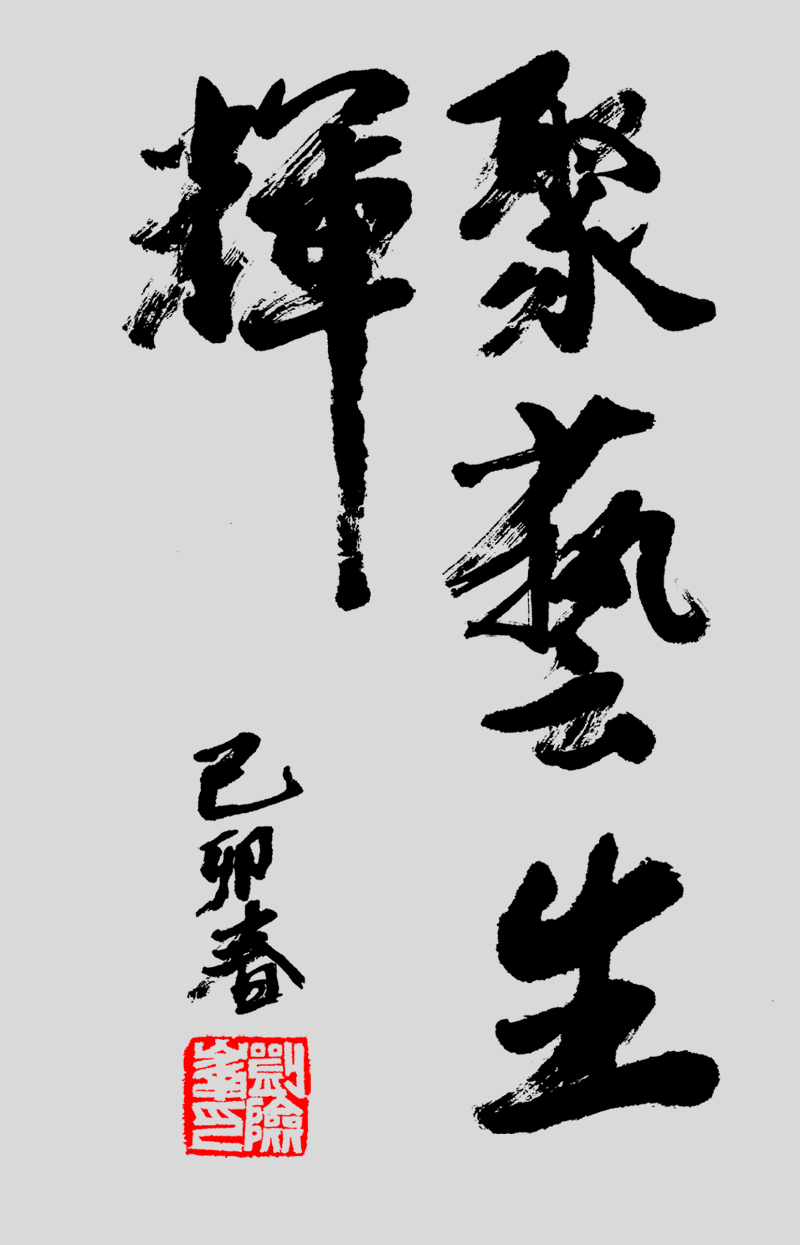 聚藝生
輝
己卯春
劉險峯印